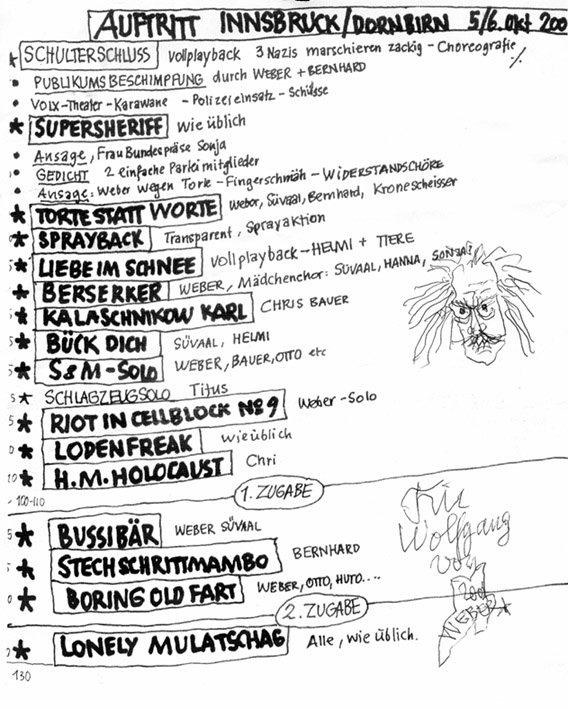 AUFTRITT INNSBRUCK/DORNBIRN 5/6. Okt 200
* SCHULTERSCHLUSS vollplayback 3 Nazis marschieren zackig - Choreografie ·/.
• PUBLIKUMSBESCHIMPFUNG durch WEBER + BERNHARD
• VOLX-Theater-Karawane - Polizeieinsatz - Schüsse
* SUPERSHERIFF wie üblich
• Ansage, Frau Bundespräse Sonja
• GEDICHT 2 einfache Parteimitglieder
• Ansage: Weber wegen Torte - Fingerschmäh - WIDERSTANDSCHÖRE
* TORTE STATT WORTE Weber, Süvaal, Bernhard, Kronescheisser
* SPRAYBACK Transparent, Sprayaktion
5 * LIEBE IM SCHNEE Vollplayback - HELMI + TIERE
* BERSERKER WEBER, Mädchenchor: SÜVAAL, HANNA, SONJA!
* KALASCHNIKOW KARL CHRIS BAUER
* BÜCK DICH SÜVAAL, HELMI
5 * S&M-SOLO WEBER, BAUER, OTTO etc
5 * SCHLAGZEUGSOLO Titus
5 * RIOT IN CELLBLOCK No 9 Weber-Solo
0 * LODENFREAK wie üblich
0 * H.M. HOLOCAUST Chri
- 100-110
1. ZUGABE
5 * BUSSIBÄR WEBER SÜVAAL
5 * STECHSCHRITTMAMBO BERNHARD
0 * BORING OLD FART WEBER, OTTO, HUTO....
2. ZUGABE
* LONELY MULATSCHAG Alle, wie üblich.
130
Für
Wolfgang
von
2001
WEBER *